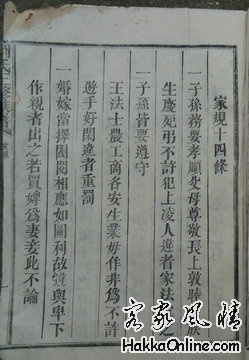 家規十四條
一子孫務要孝順父母尊敬長上敦睦族
生慶死弔不許犯上凌人違者家法
一子孫皆要遵守
王法士農工商各安生業毋作非為不許
遊手好閑違者重罰
一婚嫁當擇閥閱相應如圖利故違與卑下
作親者出之若買婢為妻妾此不論
客家風情
www.HakkaOnline.com